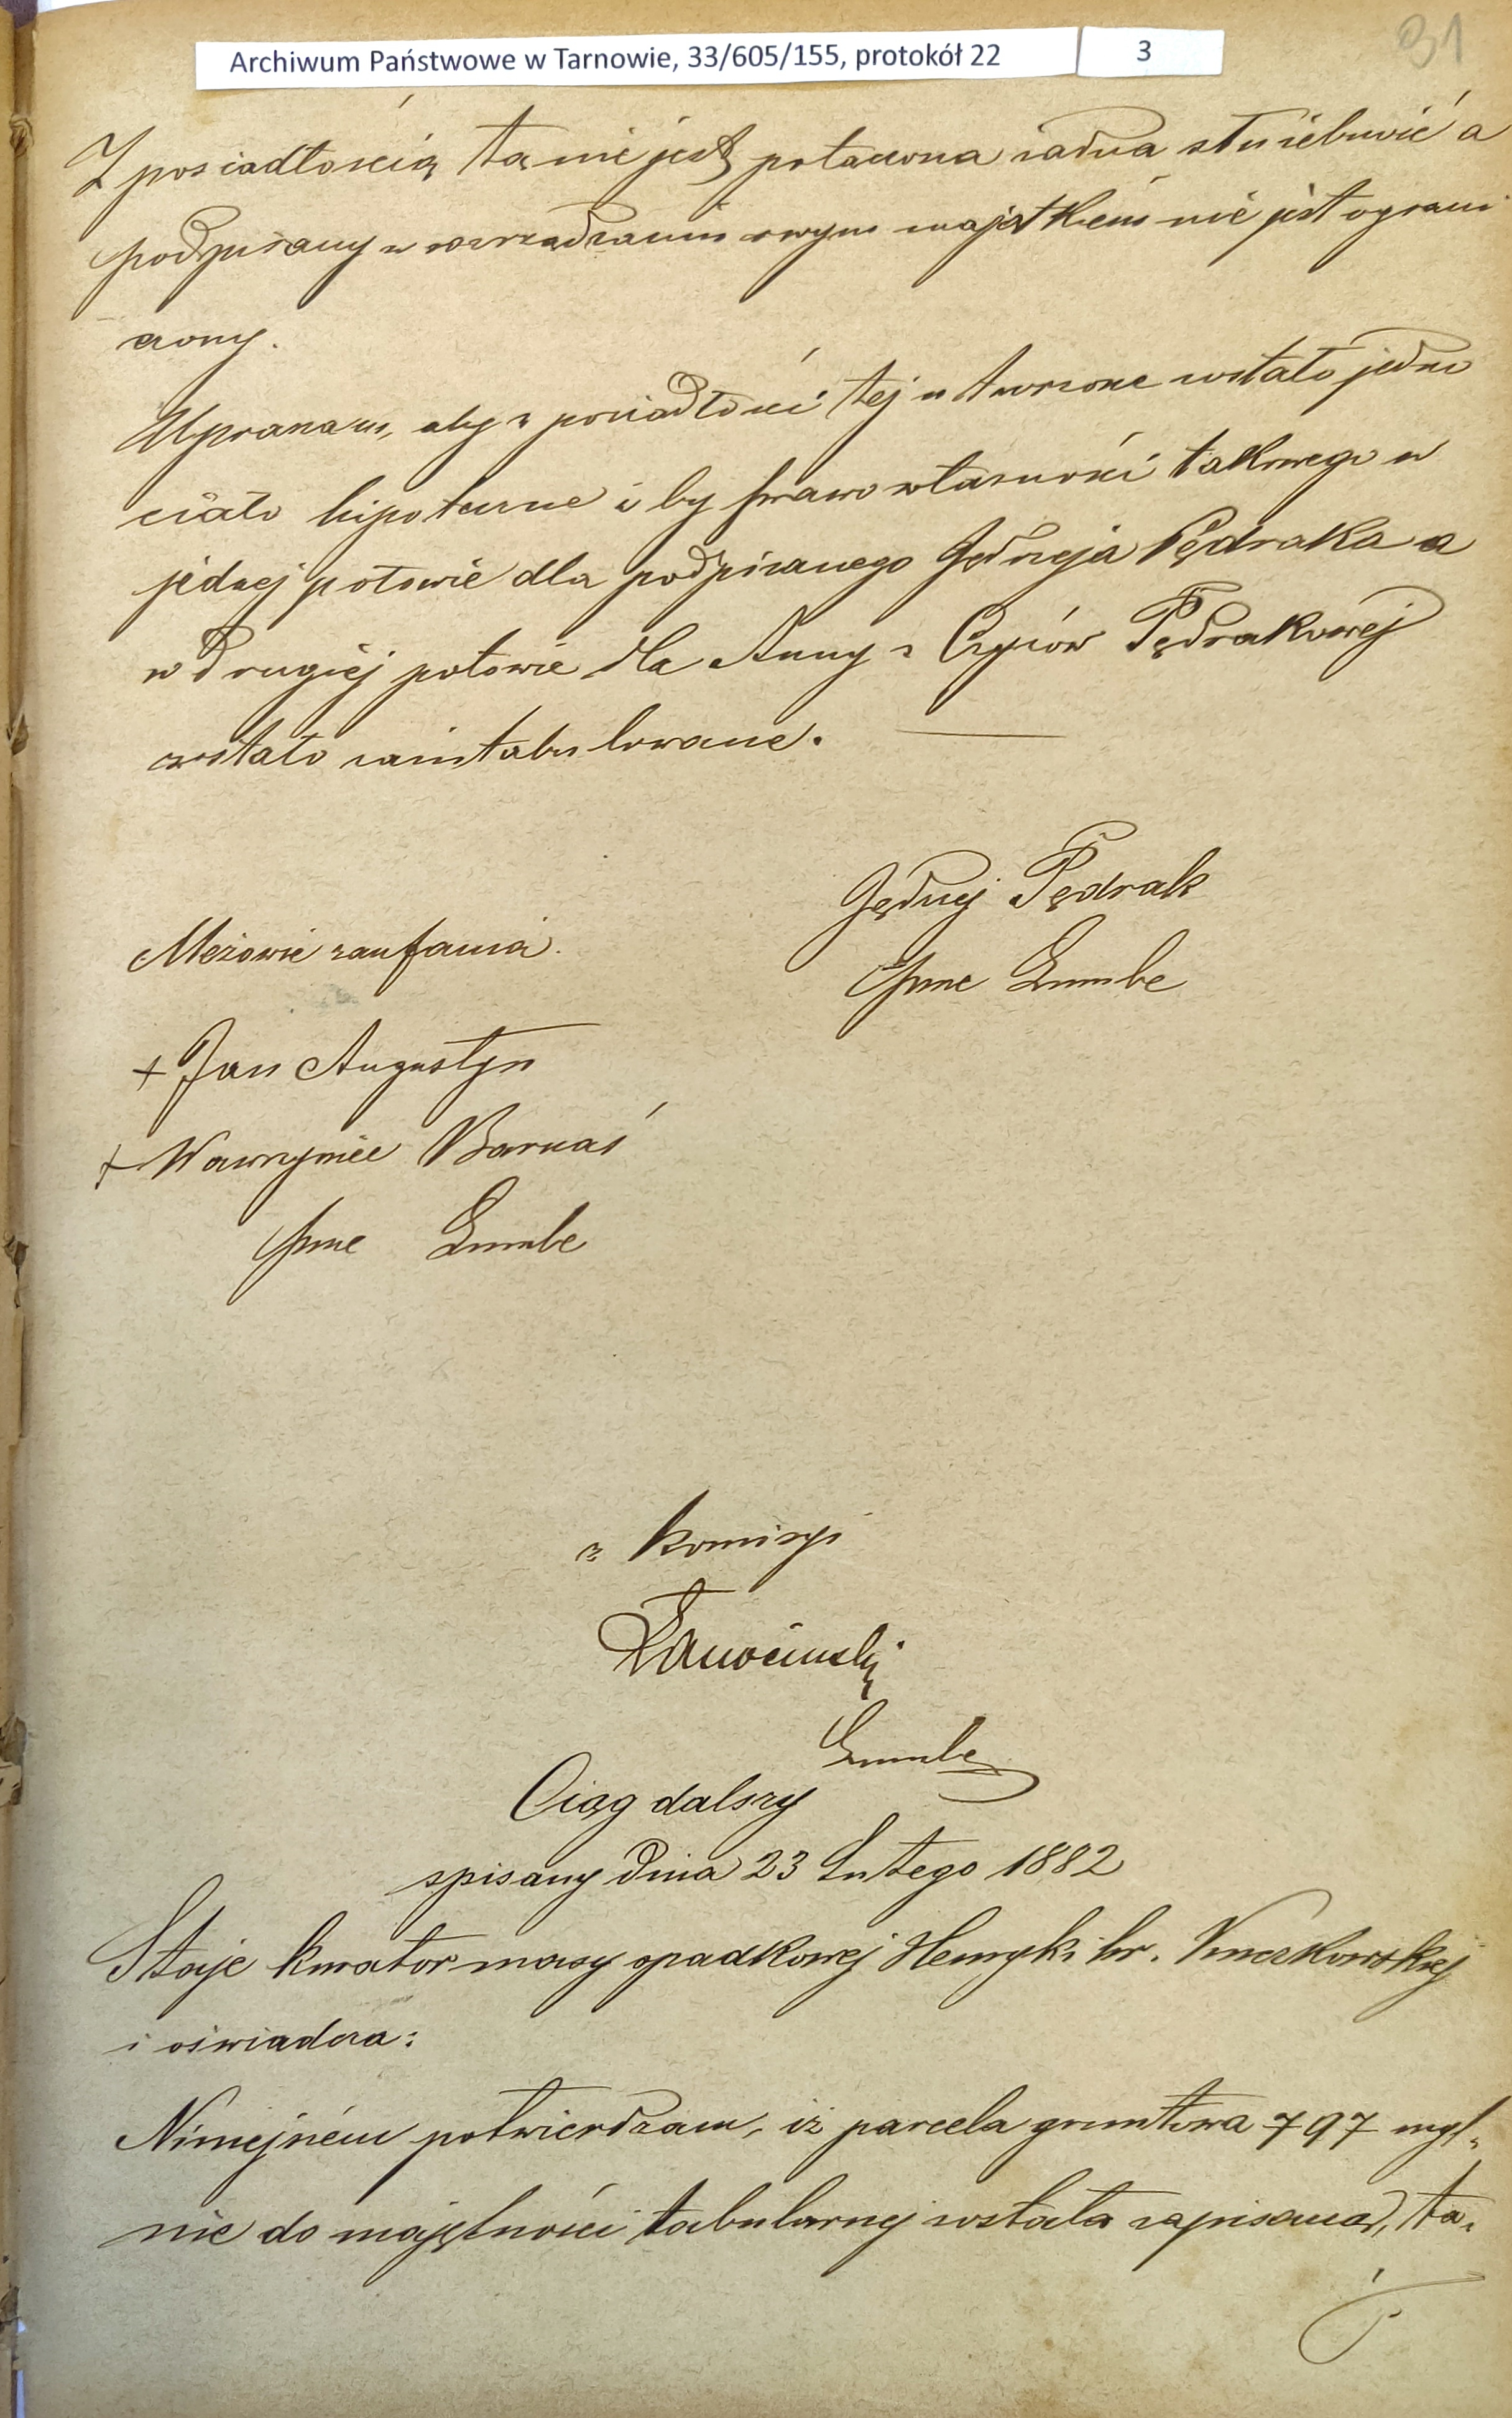 Archiwum Państwowe w Tarnowie, 33/605/155, protokół 22 3
31
Z posiadłością tą nie jest połączona żadna służebność a
podpisany w rozrządzaniu swym majątkiem nie jest ograni
czony.
Upraszam, aby z posiadłości tej utworzone zostało jedno
ciało hipoteczne i by prawo własności takowego w
jednej połowie dla podpisanego Jędrzeja Pędraka a
w drugiej połowie dla Anny z Pędrakowej
zostało zaintabulowane.
Jędrzej Pędrak
Mężowie zaufania.
+ Jan Augustyn
+ Wawrzyniec Barnaś
z komisyi
Ciąg dalszy
spisany dnia 23 Lutego 1882
Staje kurator masy spadkowej Henryki hr.
i oświadcza:
Niniejszém potwierdzam, iż parcela gruntowa 797 myl-
nie do majętności tabularnej została zapisana, ta-